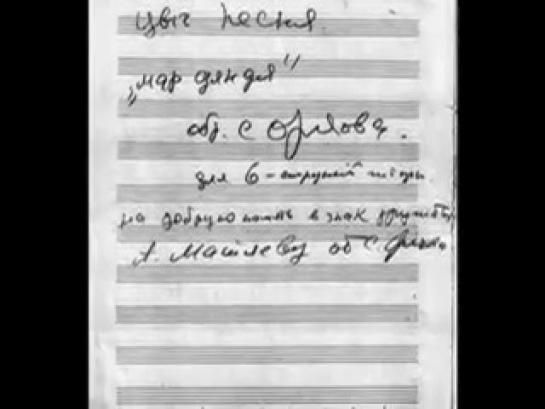 Цыг песня
"мар дяндя"
обр. С Орлова.
для 6-струнной гитары.
на добрую память в знак дружбы
А. Маталеву от С. Орлова